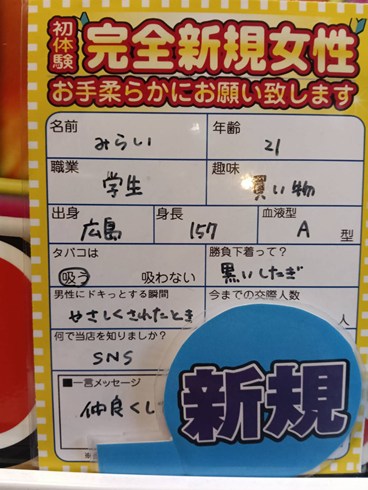 初体験
完全新規女性
お手柔らかにお願い致します
名前 みらい 年齢 21
職業 学生 趣味 買い物
出身 広島 身長 157 血液型 A 型
タバコは 勝負下着って?
吸う 吸わない 黒いしたぎ
男性にドキっとする瞬間 今までの交際人数
やさしくされたとき 人
何で当店を知りましたか?
SNS
■一言メッセージ
仲良くし
新規